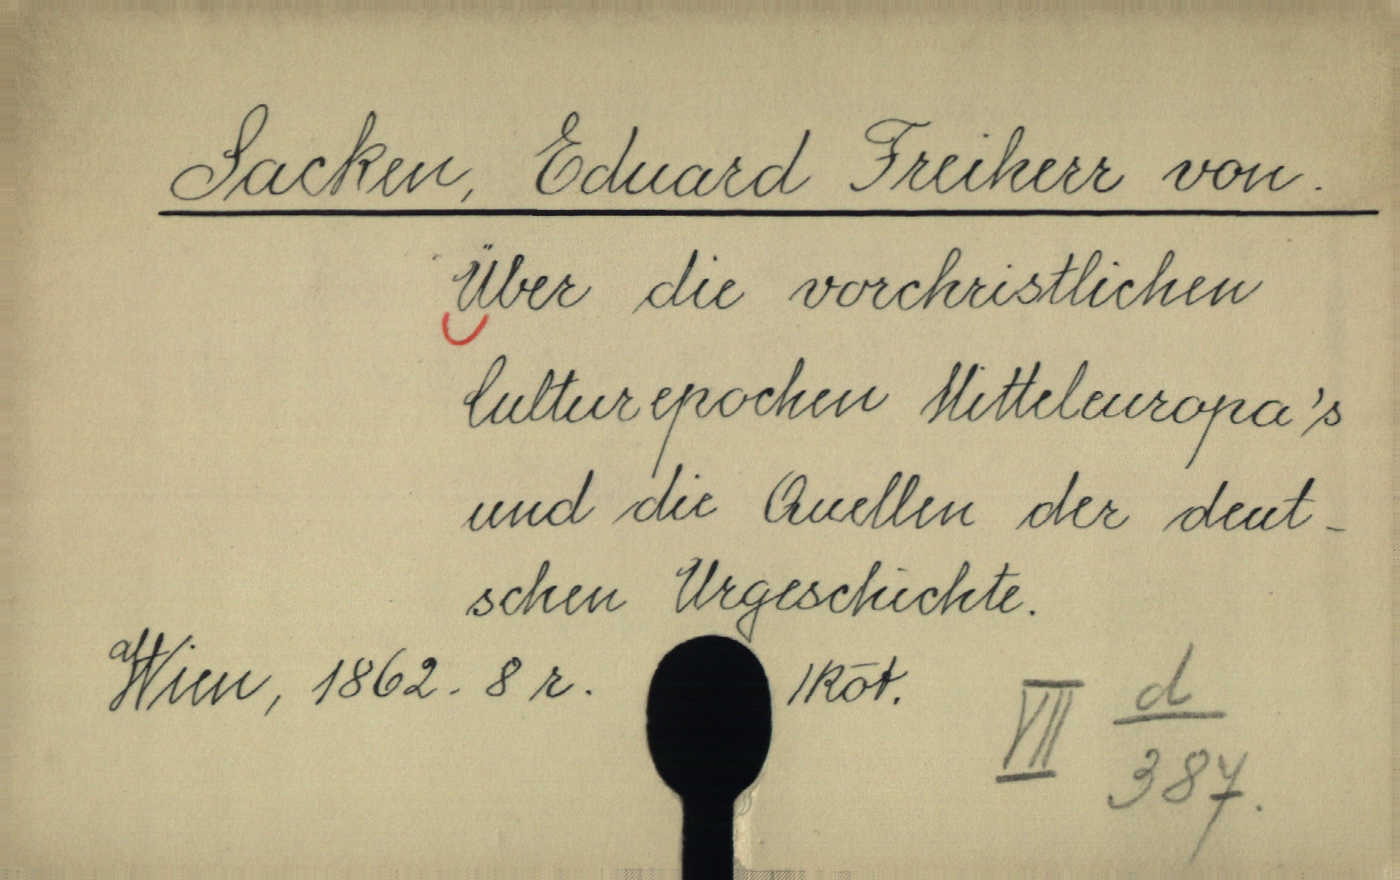 Sacken, Eduard Freiherr von.
Über die vorchristlichen
Culturepochen Mitteleuropa's
und die Quellen der deut-
schen Urgeschichte.
Wien, 1862. 8 r. 1 Köt.
VII d
387.